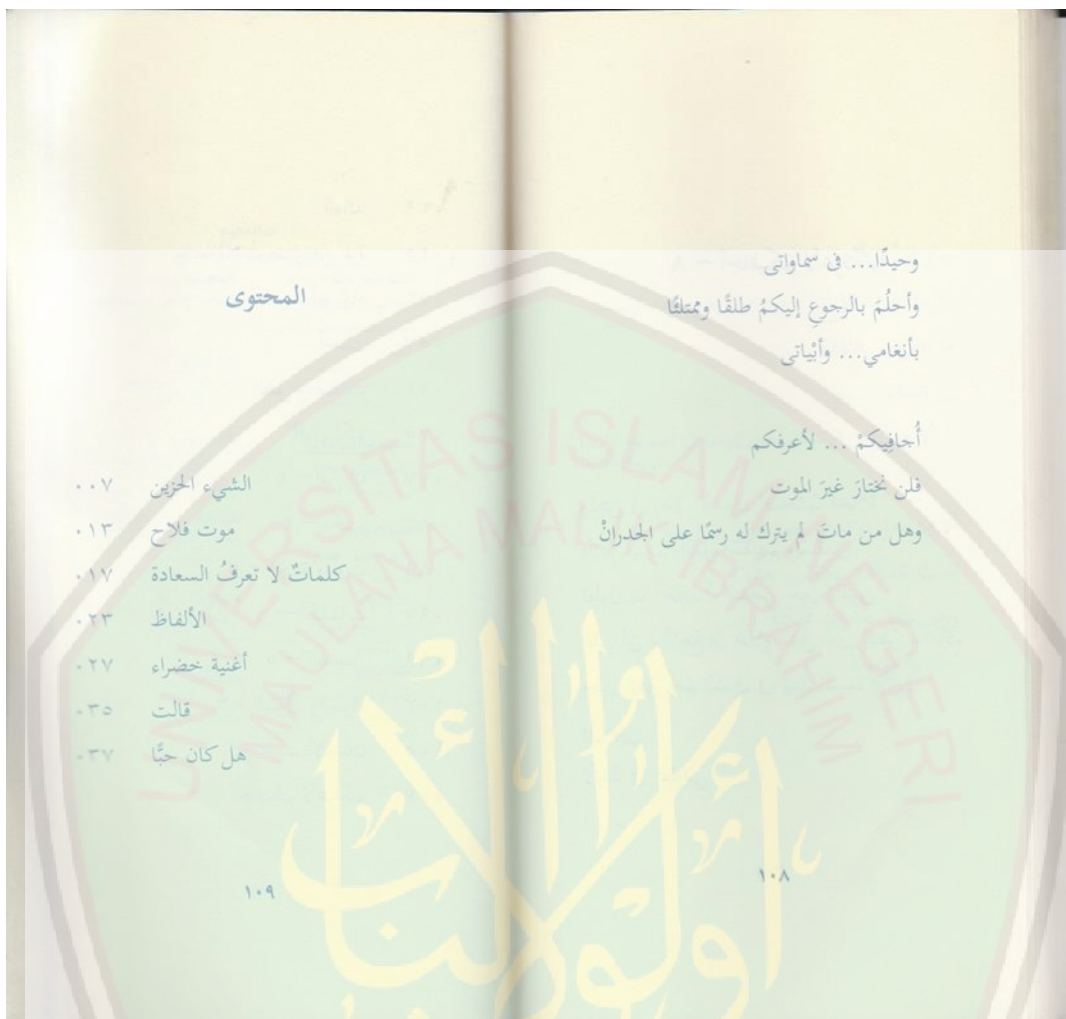 وحيدًا... فى سماواتى
وأحلُمَ بالرجوعِ إليكمُ طلقًا وممتلئًا
بأنغامي... وأبْياتى
أُجافِيكمْ ... لأعرفكم
فلن نختارَ غيرَ الموت
وهل من ماتَ لم يترك له رسمًا على الجدرانْ
١٠٨
المحتوى
الشيء الحزين ٠٠٧
موت فلاح ٠١٣
كلماتٌ لا تعرفُ السعادة ٠١٧
الألفاظ ٠٢٣
أغنية خضراء ٠٢٧
قالت ٠٣٥
هل كان حبًّا ٠٣٧
١٠٩
UNIVERSITAS ISLAM NEGERI
MAULANA MALIK IBRAHIM